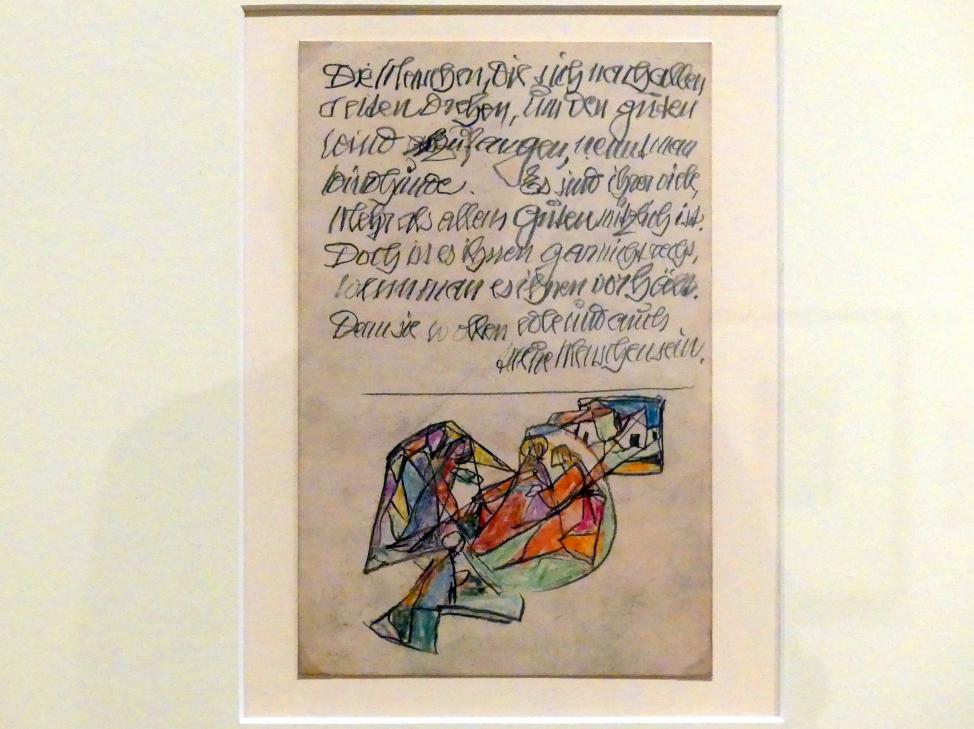 Die Menschen, die sich nach allen
Seiten drehen, um den guten
Wind zu fangen, nennt man
Windhunde. Es sind ihrer viele,
Mehr als allem Guten nützlich ist.
Doch ist es ihnen gar nicht recht,
wenn man es ihnen vorhält.
Denn sie wollen edle und auch
Menschen sein.